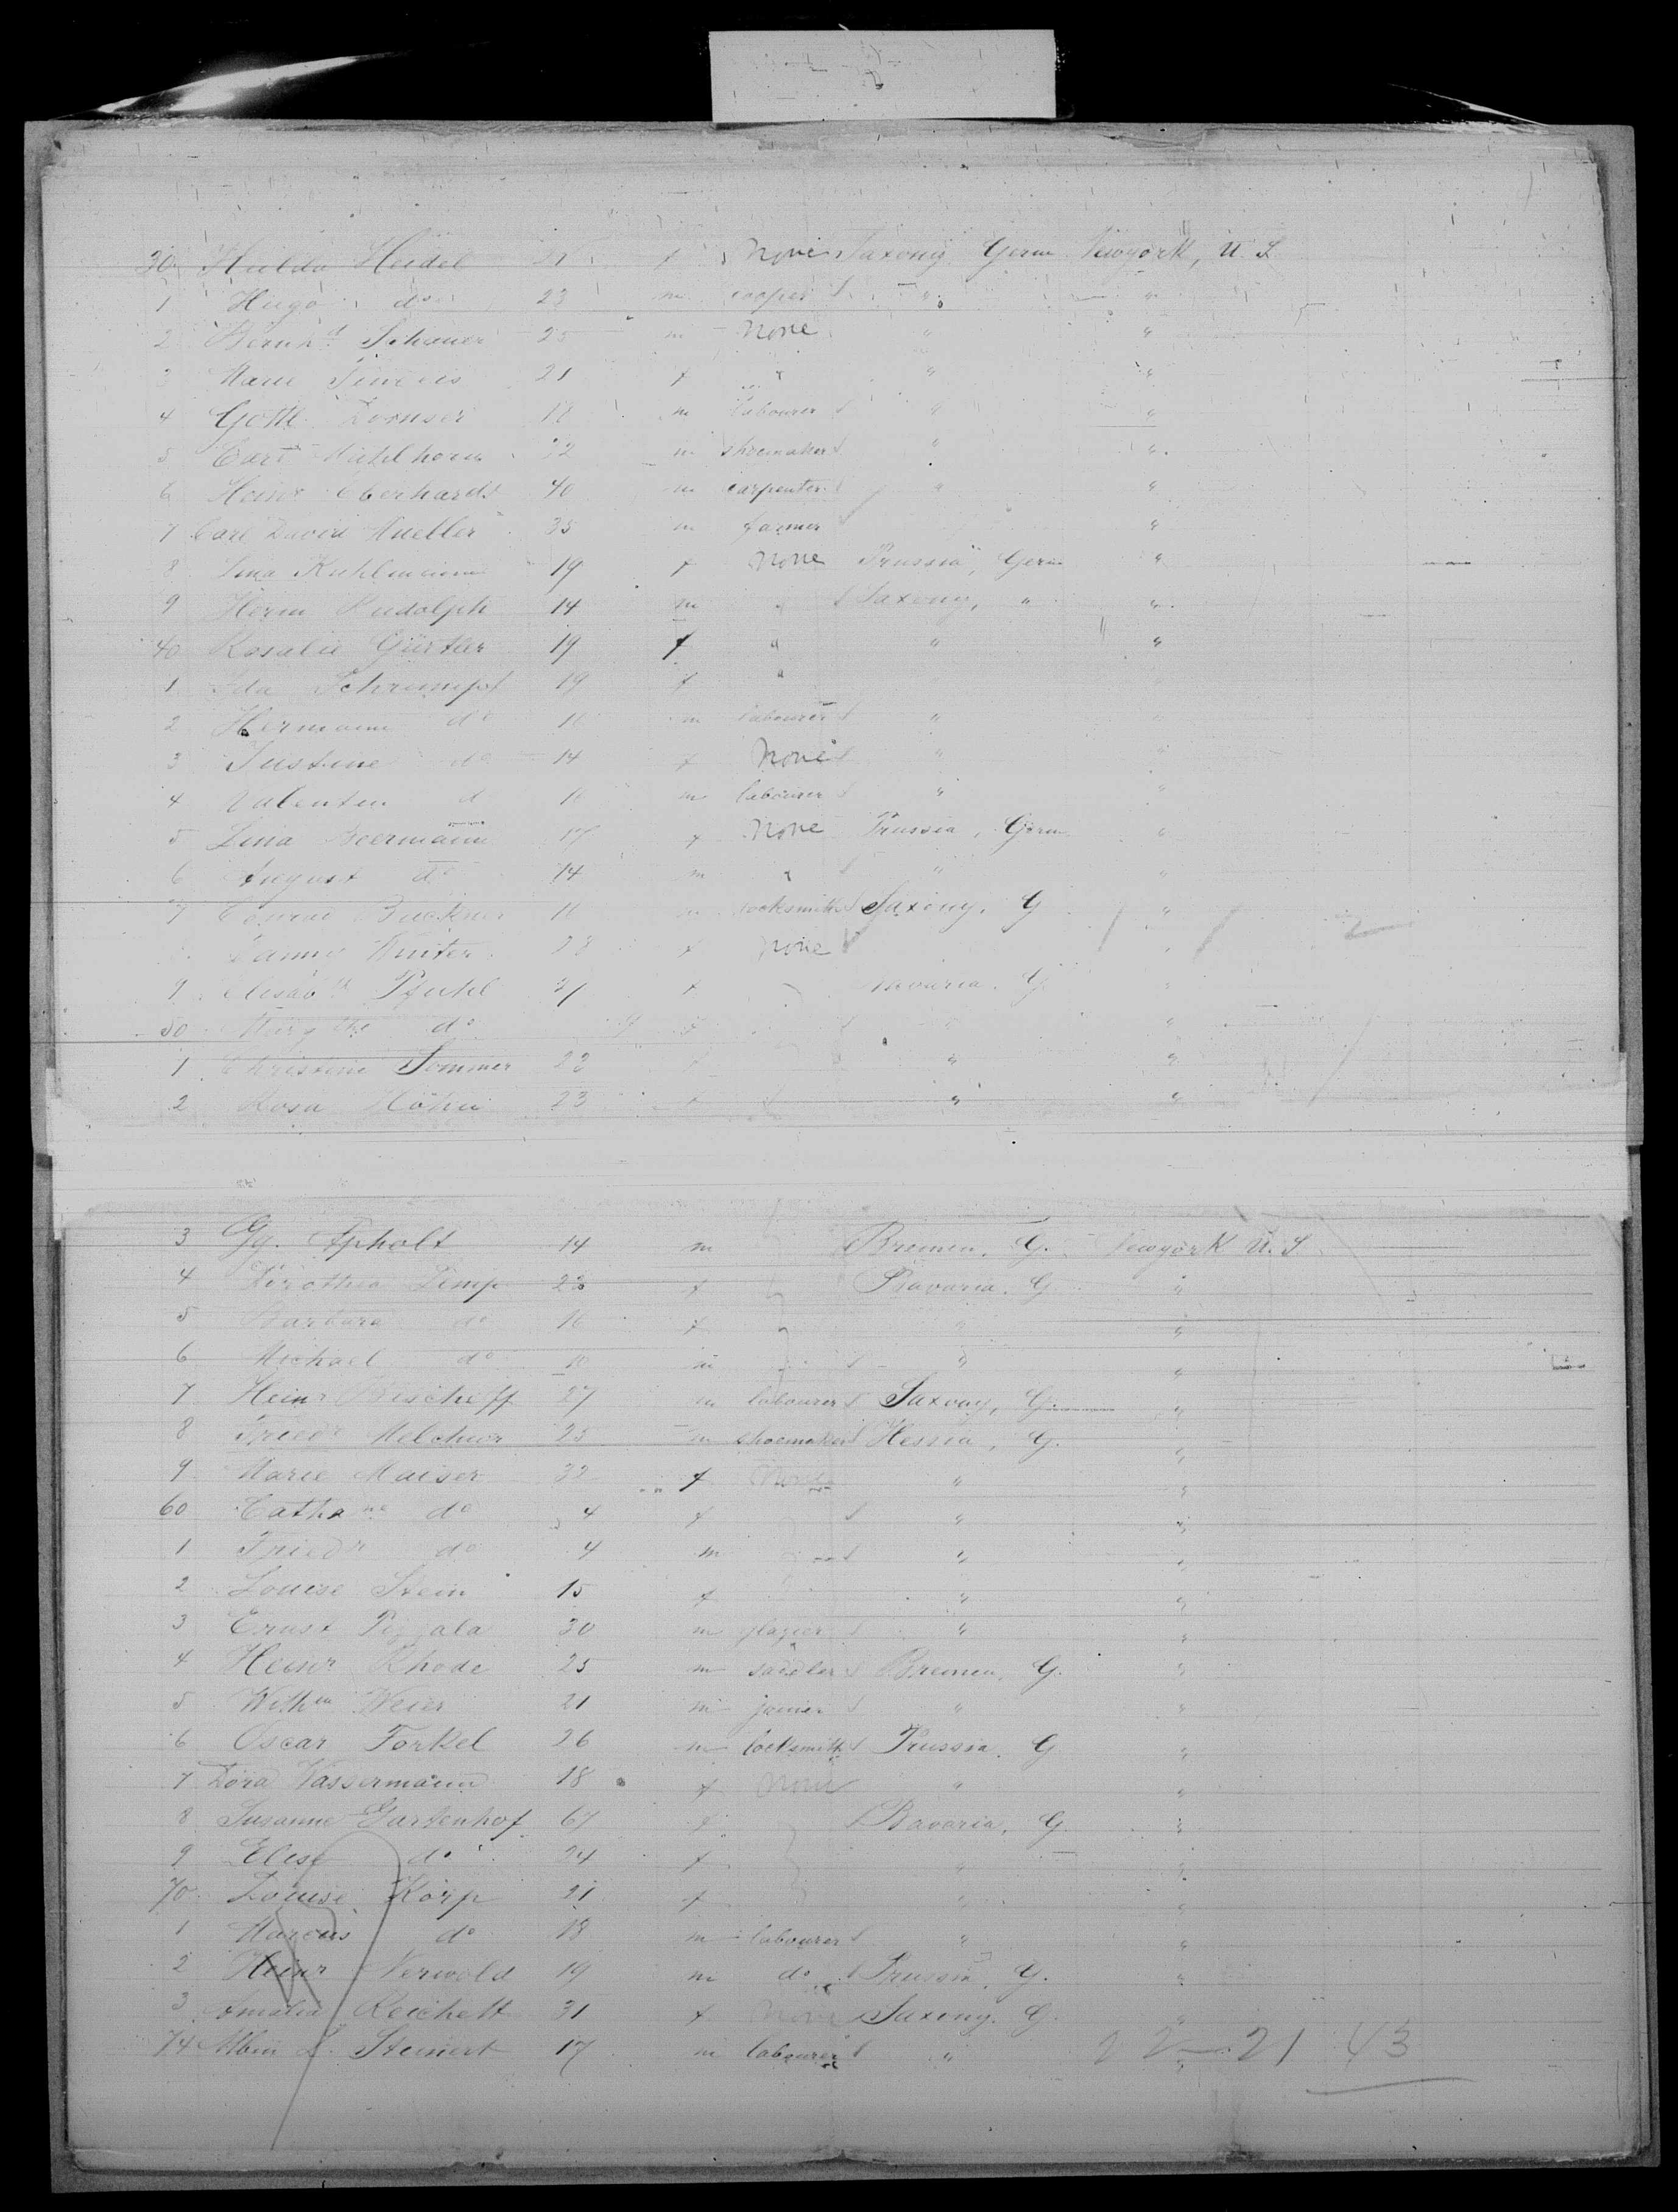 30 Hulda Heidel f none Saxony Germ Newyork, U. S
1 Hugo do 23 m cooper " "
2 Bernhd Schauer 25 m none " "
3 Marie 21 f " " "
4 Gottl. m labourer " "
5 Carl Mühlhorn 32 m shoemaker " "
6 Heinr Eberhardt 40 m carpenter " "
7 Carl David Mueller 35 m farmer "
8 Lina Kuhlmann 19 f none Prussia, Germ "
9 Herm Rudolph 14 m " Saxony, " "
40 Rosalie Gürtler 19 f " " "
1 Ida Schrumpf 19 f "
2 Hermann do 16 m labourer " "
3 Justine do 14 f none " "
4 Valentin d 16 m labourer " "
5 Lina Beermann 17 f none Prussia, Germ "
6 August do 14 m " " "
7 16 m locksmith Saxony. G "
Winter 28 f none "
9 Elisabth Pfuhl f Bavaria. G. "
50 Margthe do f " "
1 Christine Sommer 22 " "
2 Rosa Höhn 23 f " "
3 Gg. Apholt 14 m Bremen, G. Newyork U. S
4 Dorothea 23 f Bavaria. G. "
5 Barbara do 16 f " "
6 Michael do 10 m " "
7 Heinr Bischoff 27 m labourer Saxony, G. "
8 Friedr Melchior 25 m shoemaker Hessia, G. "
9 Marie Maiser 32 f none " "
60 Cathane do 4 f " "
1 Friedr do 4 m " "
2 Louise Stein 15 f " "
3 Ernst 30 m glazier " "
4 Heinr Rhode 25 m sadler Bremen, G. "
5 Wilhm Weier 21 m joiner " "
6 Oscar Forkel 26 m locksmith Prussia. G "
7 Dora Wassermann 18 f none " "
8 Susanne Gartenhof 67 f Bavaria, G. "
9 Elise do 24 f " "
70 Louise Körp 21 f " "
1 Marcus do 18 m labourer " "
2 Heinr Nerwold 19 m do Prussia, G. "
3 Amalia Reichelt 31 f none Saxony. G. "
74 Albin L. Steinert 17 m labourer " "
22 21 43